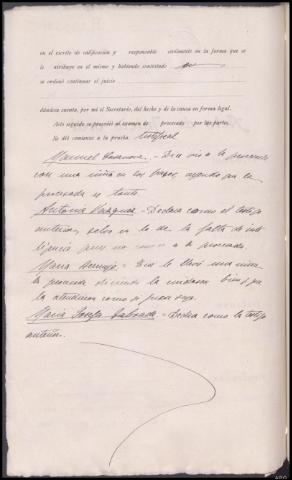 en el escrito de calificación y responsable civilmente en la forma que se
le atribuye en el mismo y habiendo contestado
se ordenó continuar el juicio
dándose cuenta, por mi el Secretario, del hecho y de la causa en forma legal.
Acto seguido se procedió al examen de procesado por las partes.
Se dió comienzo a la prueba testifical
Manuel Casanova.- Dice vio a la procesada
con una niña en los brazos, que la
procesada es tonta
Antonia Vazquez - Declara como el testigo
anterior, salvo en lo de la falta de inte
ligencia pues no conoce a la procesada.
Maria Bermejo.- Dice le llevó una niña
la procesada diciendo la cuidaran bien, que
la atendieran como si fuera suya.
Maria Josefa - Declara como la testigo
anterior.